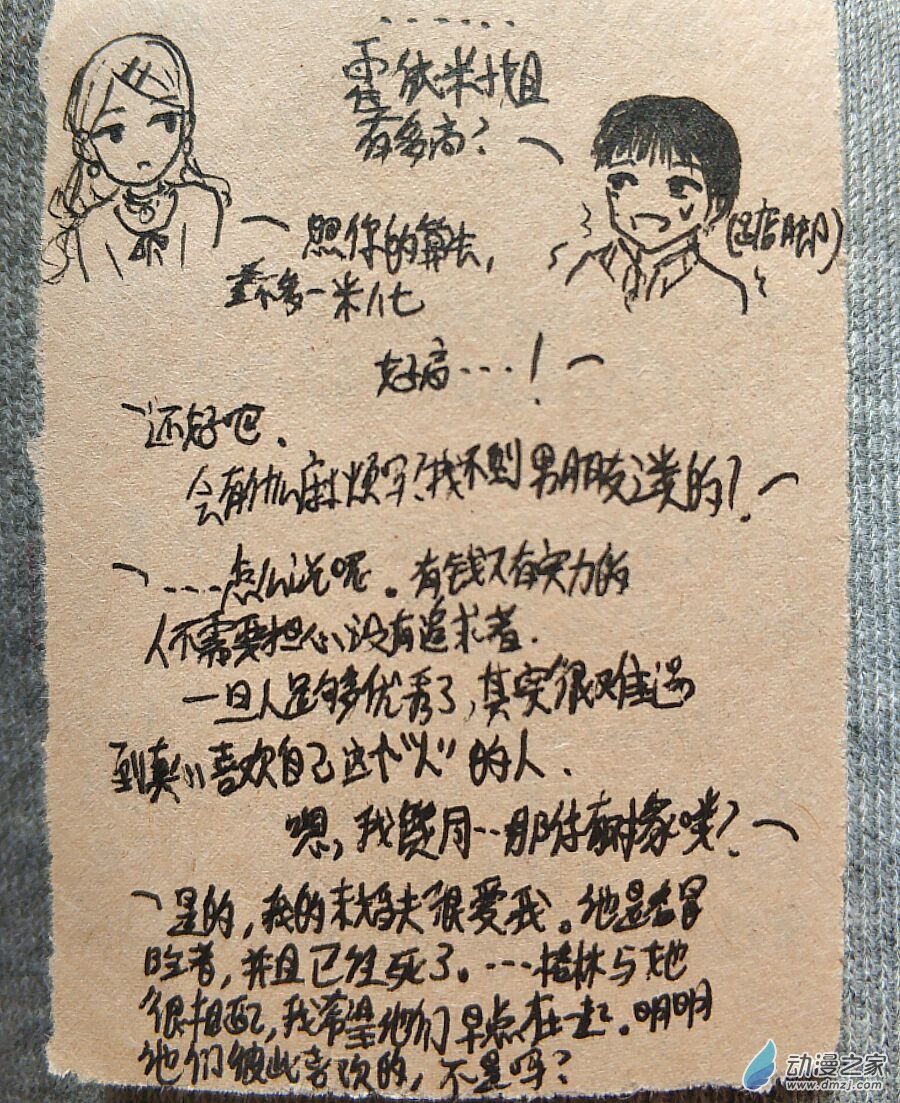 .......
霍依米小姐
有多高？
照你的算法，
差不多一米八七
(迅店脚)
好高....！
还好吧．
会有什么麻烦吗？找不到男朋友之类的？
....怎么说呢。有钱又有实力的
人不需要担心没有追求者．
一旦人足够多优秀了，其实很难遇
到真心喜欢自己这个“人”的人．
嗯，我明..那你有对象喽？
是的，我的未婚夫很爱我。他是名冒
险者，并且已经死了。...格林与她
很相配，我希望他们早点在一起。明明
他们彼此喜欢的，不是吗？
动漫之家
www.dmzj.com